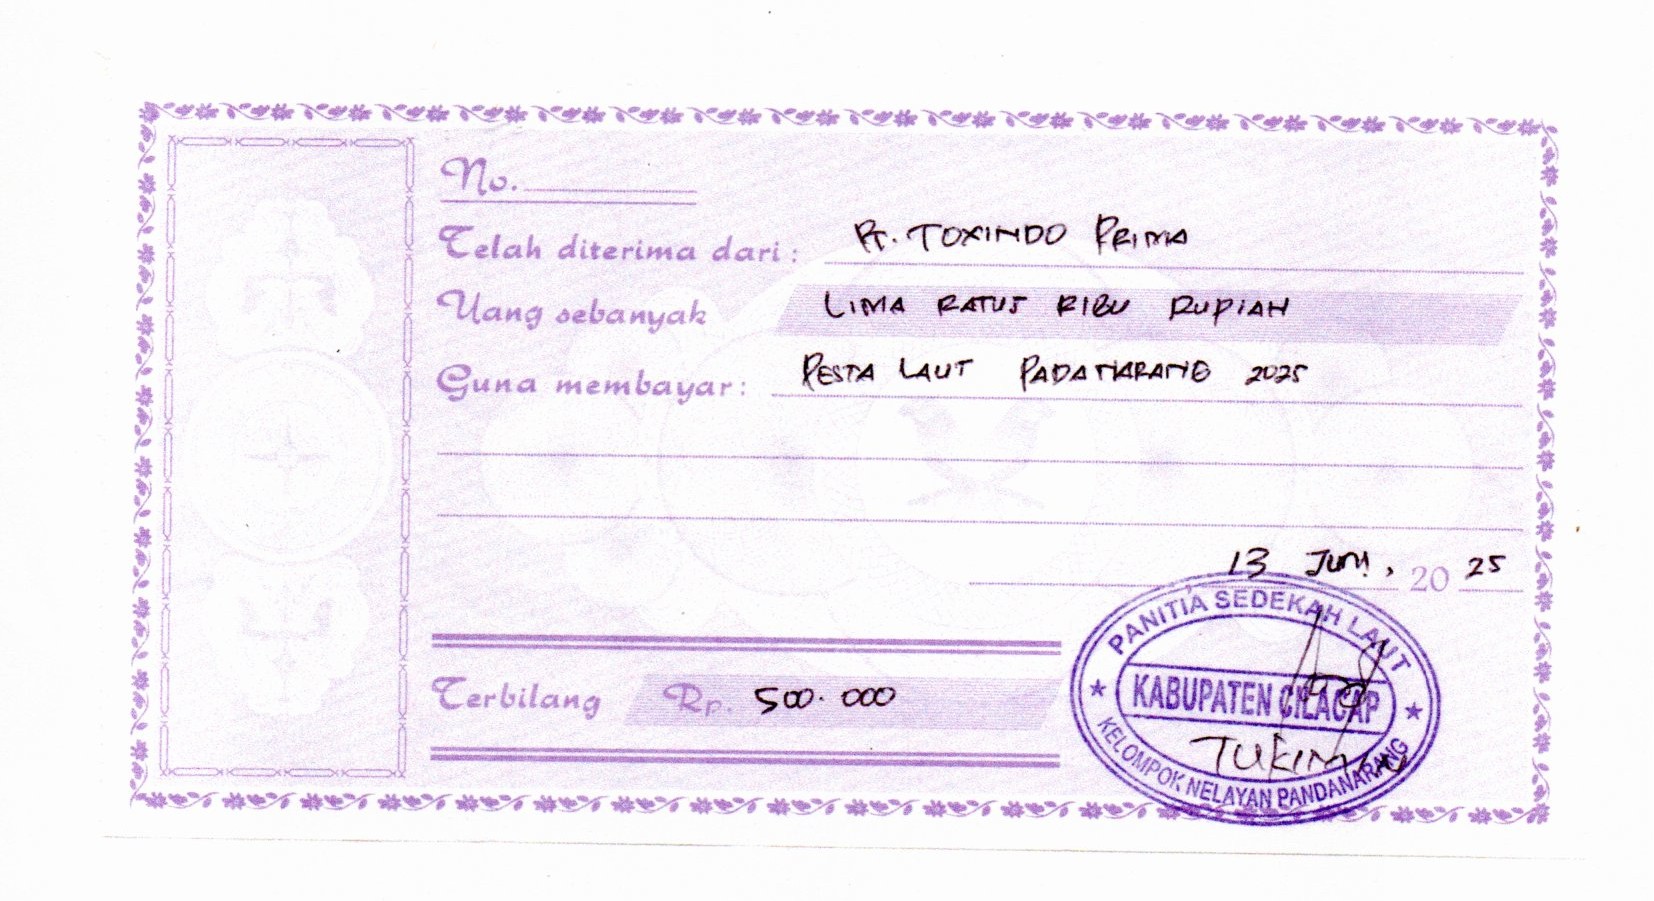 No.
Telah diterima dari : PT. TOXINDO PRIMA
Uang sebanyak LIMA RATUS RIBU RUPIAH
Guna membayar : PESTA LAUT PADANARANG 2025
13 JUNI, 20 25
Terbilang Rp. 500.000
PANITIA SEDEKAH LAUT
KABUPATEN CILACAP
TUKIMAN
KELOMPOK NELAYAN PANDANARANG